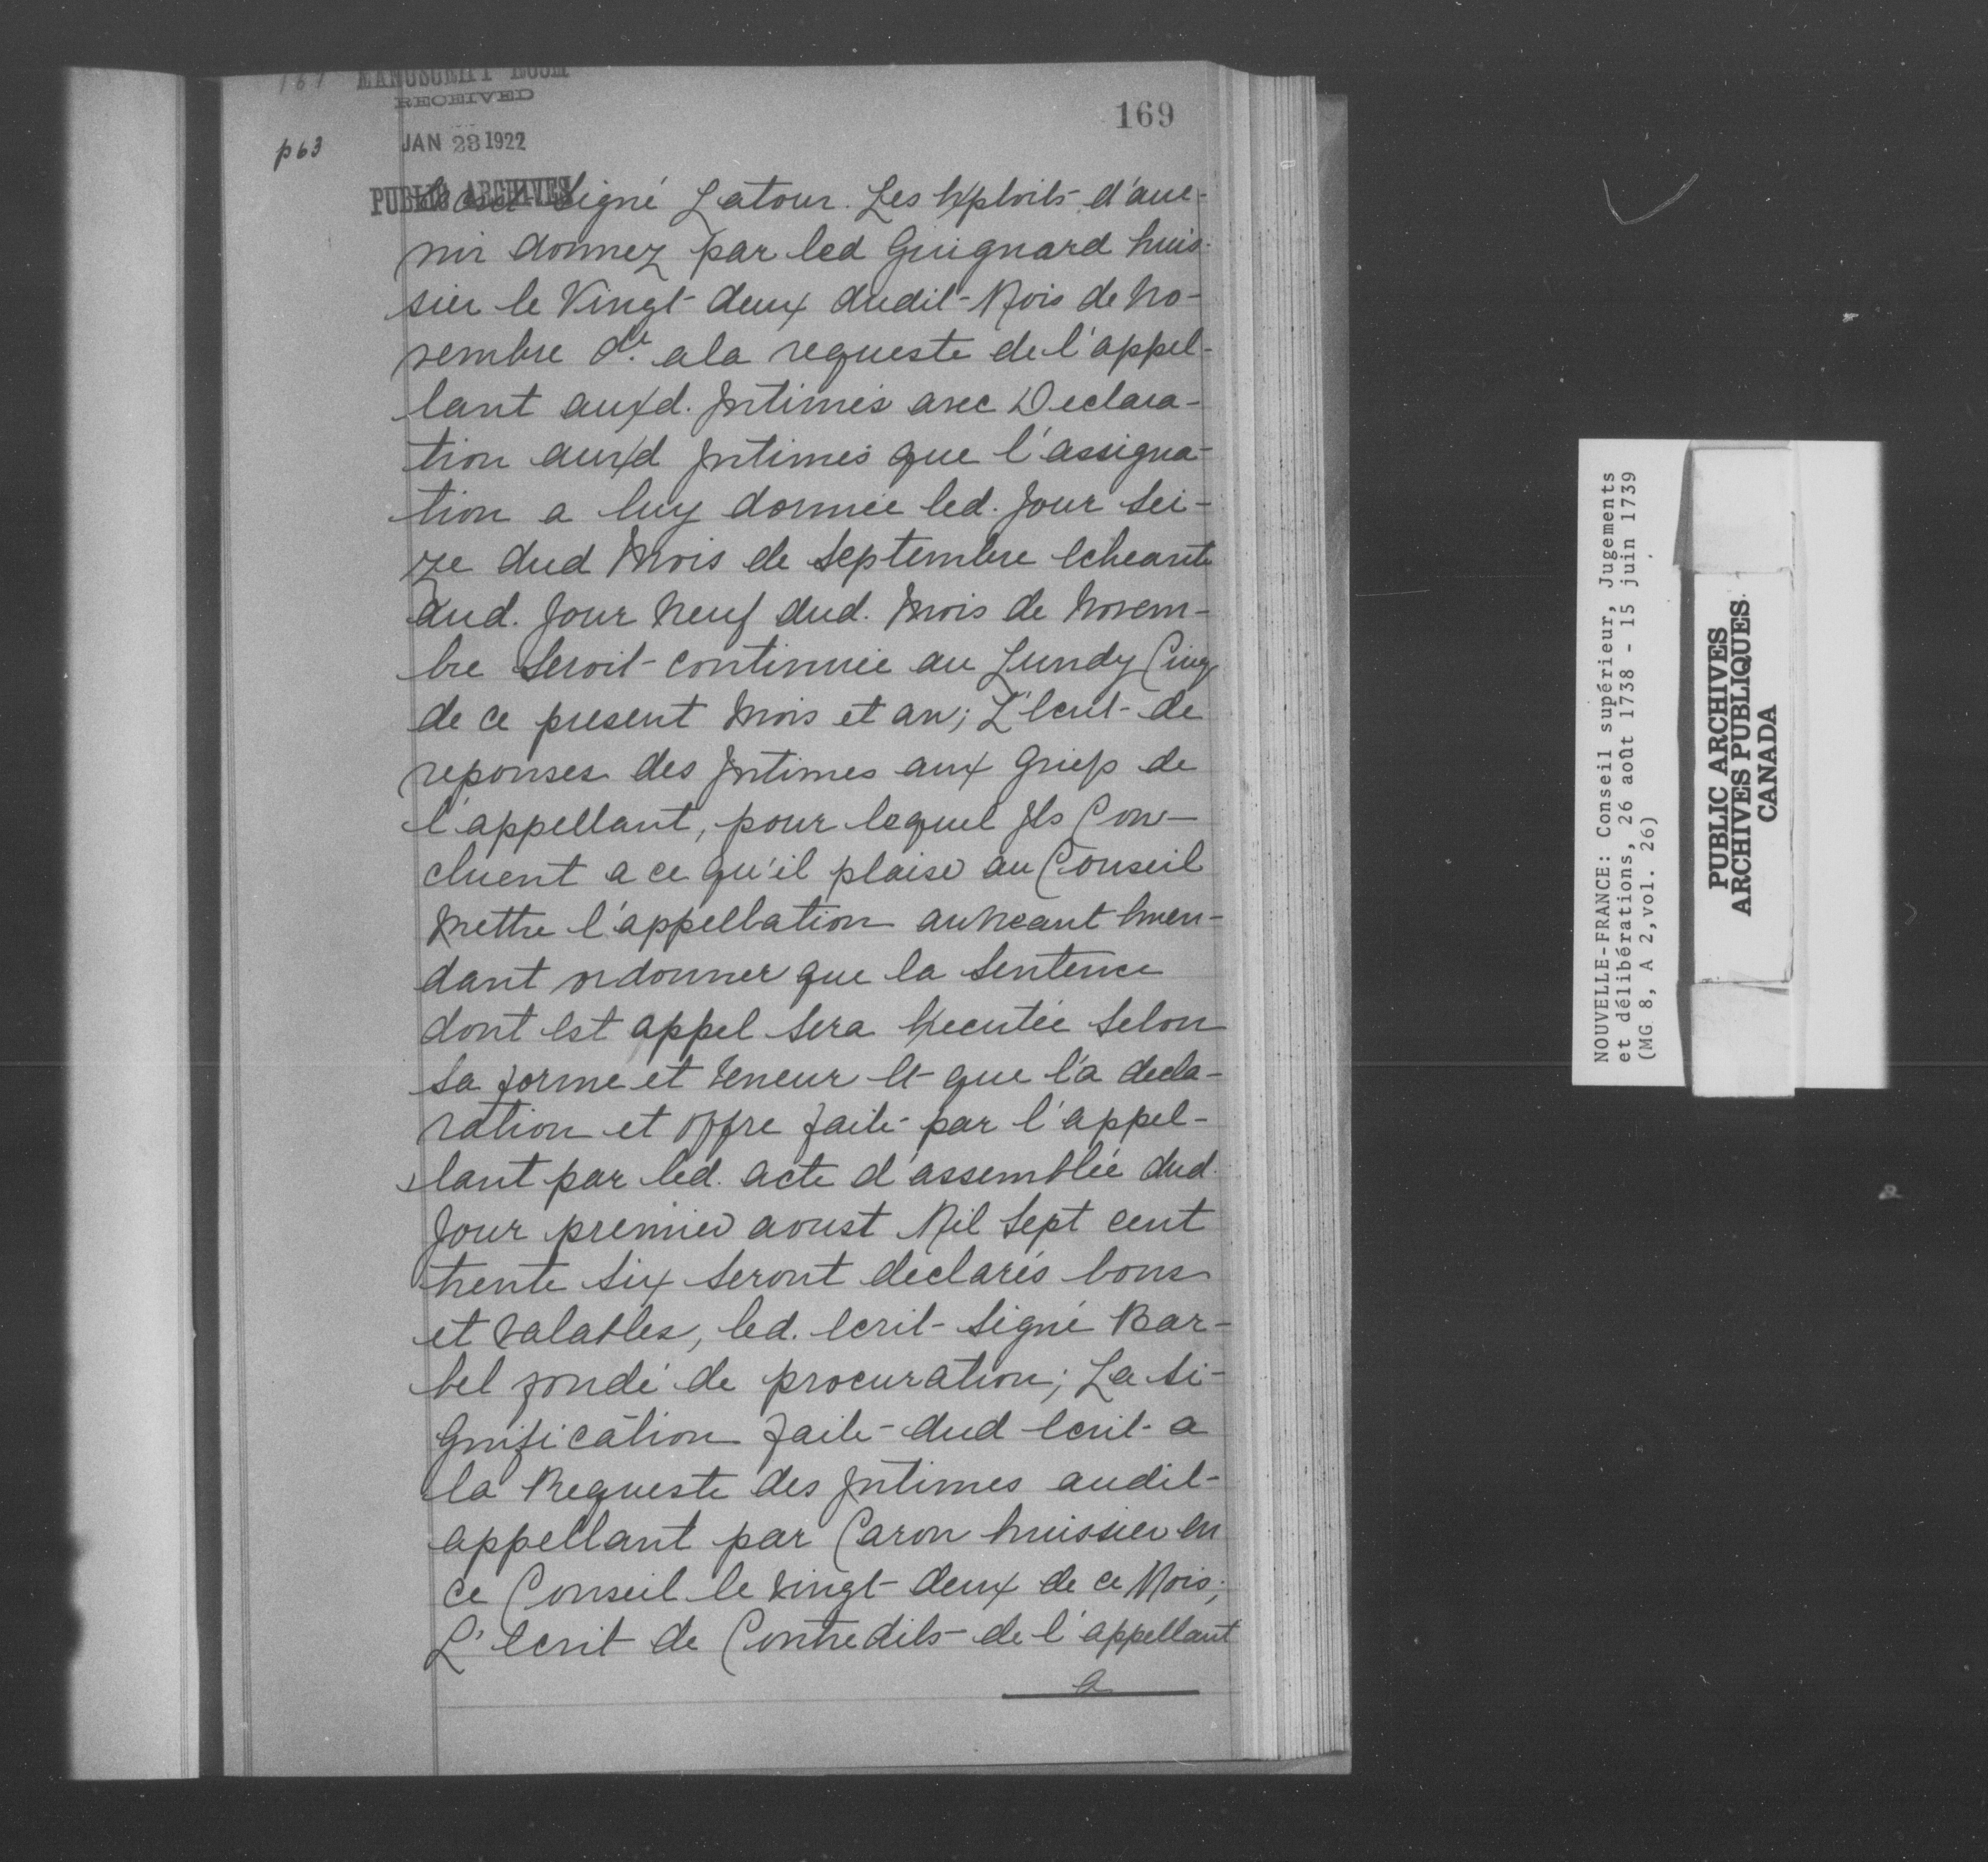 167 MANUSCRIPT ROOM
RECEIVED
169
p63
JAN 23 1922
PUBLIC ARCHIVES
Signé Latour. Les Exploits d'ave-
nir donnez par led Guignard huis-
sier le Vingt deux dudit Mois de No-
vembre dr. ala requeste de l'appel-
lant auxd. Intimés avec Declara-
tion auxd Intimés que l'assigna-
tion a luy donnée led. Jour Sei-
ze dud Mois de Septembre Echeante
aud. Jour Neuf dud. Mois de Novem-
bre Seroit continuée au Lundy Cinq
de ce present Mois et an; L'Ecrit de
reponses des Intimes aux Griefs de
l'appellant, pour lequel Ils Con-
cluent a ce qu'il plaise au Conseil
Mettre l'appellation au Neant Emen-
dant ordonner que la Sentence
dont Est appel Sera Executée Selon
Sa forme et teneur Et que la decla-
ration et offre faite par l'appel-
lant par led. acte d'assemblée dud.
Jour premier aoust Mil Sept cent
trente Six Seront declarés bons
et Valables, led. Ecrit Signé Bar-
bel fondé de procuration; La Si-
gnification faite dud Ecrit a
la Requeste des Intimes audit
appellant par Caron huissier En
ce Conseil le Vingt deux de ce Mois;
L'Ecrit de Contredits de l'appellant
a
NOUVELLE-FRANCE: Conseil supérieur, Jugements
et délibérations, 26 août 1738 - 15 juin 1739
(MG 8, A 2,vol. 26)
PUBLIC ARCHIVES
ARCHIVES PUBLIQUES
CANADA